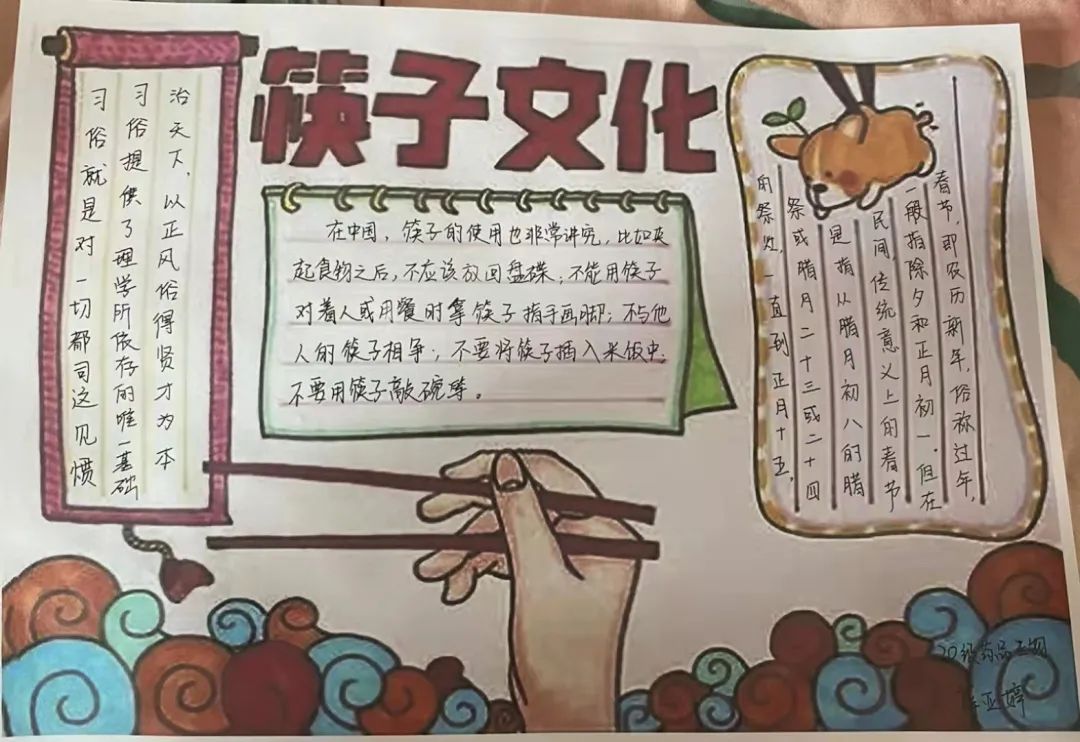 筷子文化
治天下，以正风俗得贤才为本
习俗提供了理学所依存的唯一基础
习俗就是对一切都司这见惯
在中国，筷子的使用也非常讲究，比如夹
起食物之后，不应该放回盘碟，不能用筷子
对着人或用餐时拿筷子指手画脚；不与他
人的筷子相争；不要将筷子插入米饭中；
不要用筷子敲碗等。
春节，即农历新年，俗称过年，
一般指除夕和正月初一。但在
民间，传统意义上的春节
是指从腊月初八的腊
祭或腊月二十三或二十四
的祭灶，一直到正月十五，
20级药品
亚婷